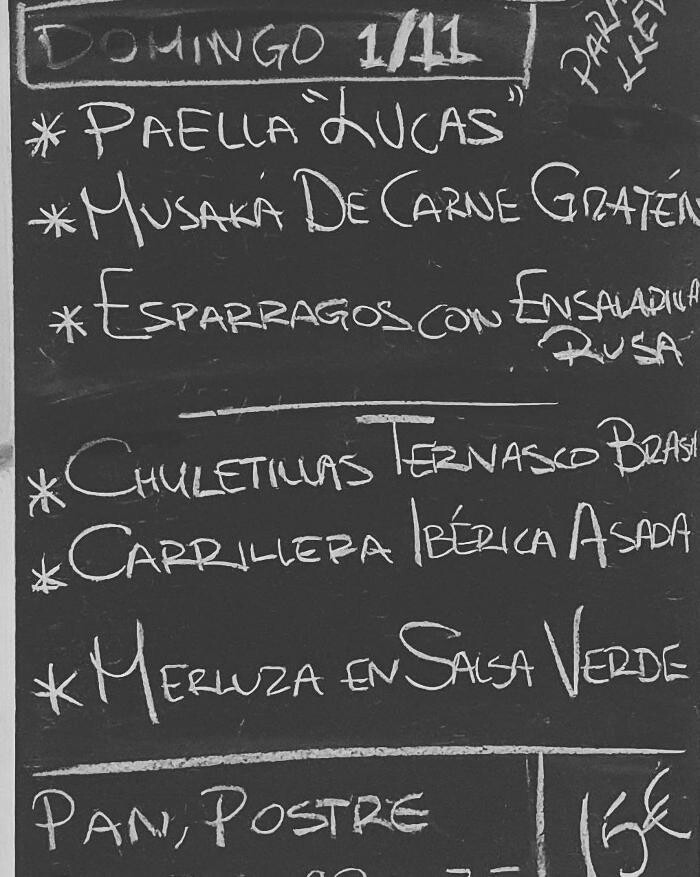 DOMINGO 1/11
PARA
LLEV
* PAELLA "LUCAS"
* MUSAKÁ DE CARNE GRATÉN
* ESPARRAGOS CON ENSALADILLA
RUSA
* CHULETILLAS TERNASCO BRAS
* CARRILLERA IBÉRICA ASADA
* MERLUZA EN SALSA VERDE
PAN, POSTRE 15€